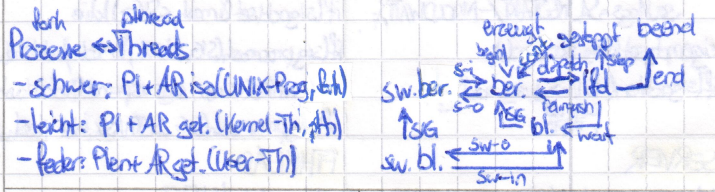 fork pthread
Prozesse ↔ Threads
- schwer: PI + AR iso (UNIX-Prog, fork)
- leicht: PI + AR get. (Kernel-Th, pth)
- feder: PI ent + AR get. (User-Th)
erzeugt gestoppt beend
begin cont dispatch stop end
sw. ber. s-i s-o ber. lfd
SIG SIG preempt bl. wait
sw. bl. sw-o
sw-in